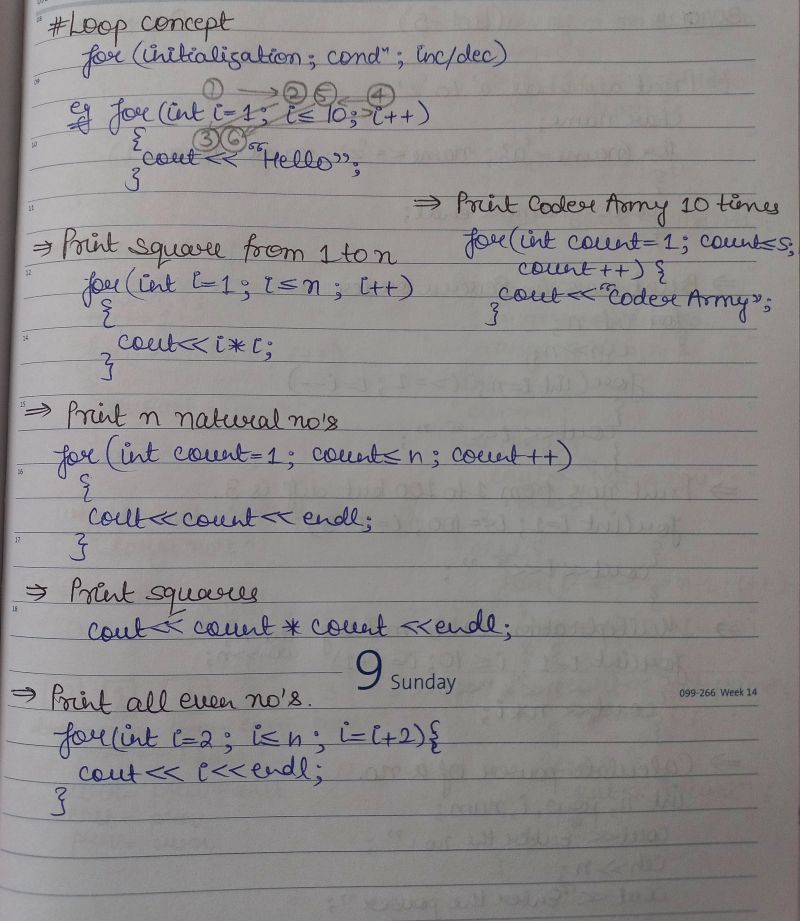 #Loop concept
for (initialization ; condⁿ ; inc/dec)
① ② ⑤ ④
eg for(int i=1; i≤ 10; i++)
③ ⑥
{
cout << "Hello";
}
⇒ Print Coder Army 10 times
for(int count=1; count≤5;
count++) {
cout<<"Coder Army";
}
⇒ Print square from 1 to n
for(int i=1; i≤n ; i++)
{
cout<<i*i;
}
⇒ Print n natural no's
for(int count=1; count≤n; count++)
{
cout<<count<<endl;
}
⇒ Print squares
cout<< count * count <<endl;
9 Sunday
099-266 Week 14
⇒ Print all even no's.
for(int i=2; i≤n; i=i+2){
cout<< i<<endl;
}